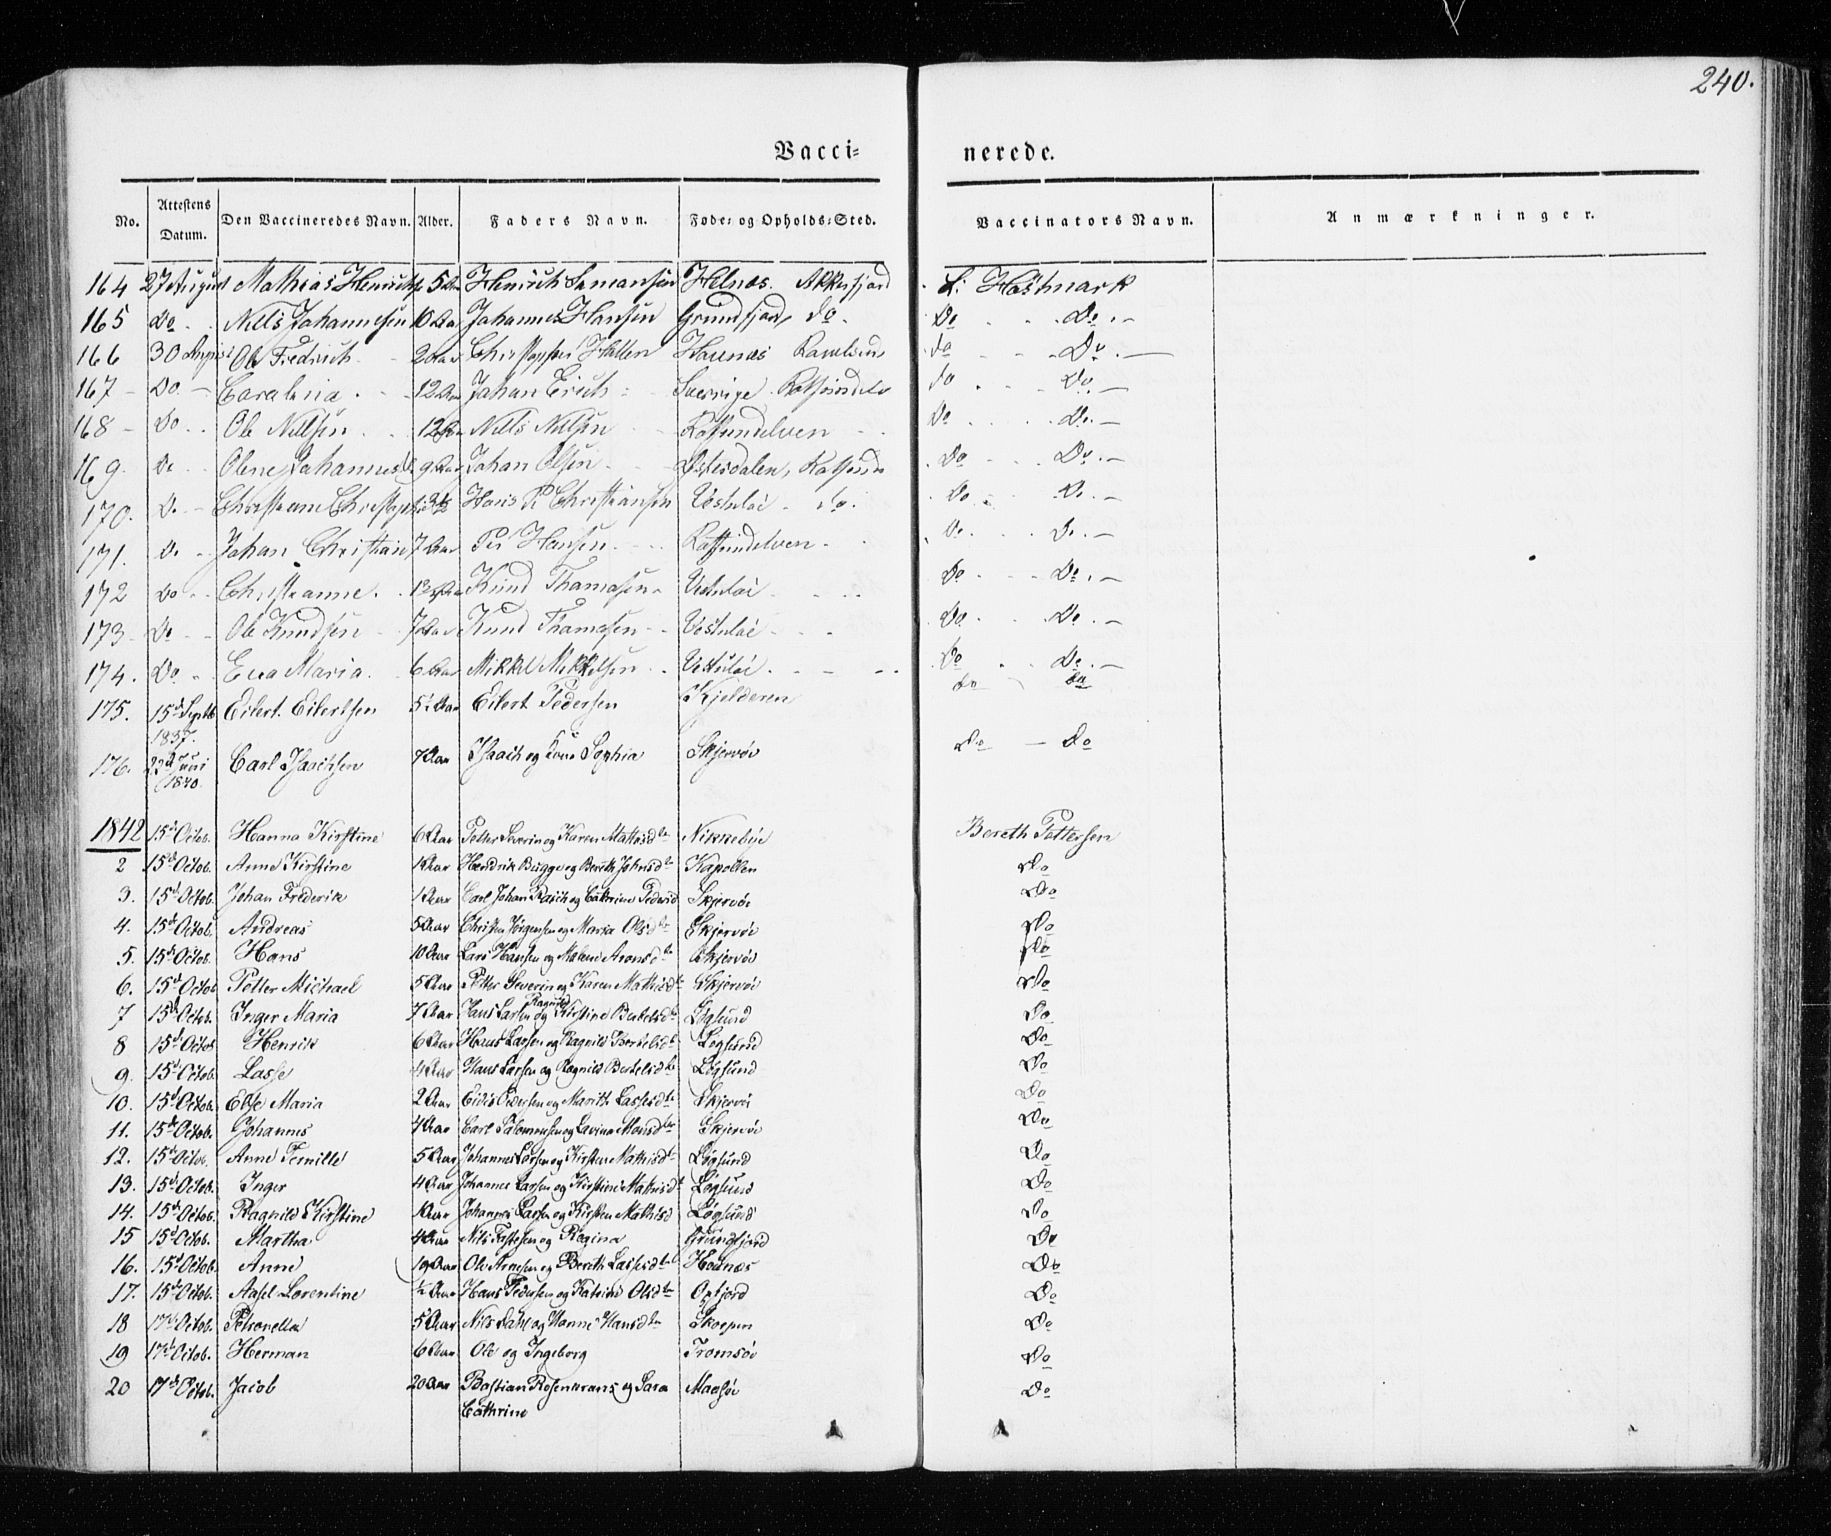 240.
Vacci= nerede.
No. Attestens Datum. Den Vaccineredes Navn. Alder. Faders Navn. Føde= og Opholds=Sted. Vaccinators Navn. Anmærkninger.
164 27 August Mathias Henrich 5 Aar Henrich Helnæs. Akkefjord Høstmark
165 Do Nills Johannesen 10 Aar Johannes Hansen Grundfjord, do. Do Do
166 30 August Ole Fredrich 2 Aar Hatten Haunæs do Do
167 Do Carolina 12 Aar Johan Erich Sverrige do Do
168 Do Ole Nillsen 12 Aar Nills Nillsen Rotsundelven Do Do
169. Do Olene Johannes 9 Aar Johan Olsen Do Do
170. Do Hans P Christiansen do. Do Do
171. Do Johan Christian 7 Aar Per Hansen Rotsundelven Do Do
172 Do Christianne Knud Thomasen Do Do
173 Do Ole Knudsen 7 Aar Knud Thomasen Do Do
174. Do Eva Maria. 6 Aar Mikkel Mikkelsen Do Do
175. 15d Septb 1837. Eilert Eilertsen 5½ Aar Eilert Pedersen Kjelderen do do
176. 23d Juni 1840. Carl Isachsen 7 Aar Isaach og Kone Sophia Skjervöe Do Do
1842 15d Octob. Hanna Kirstine 6 Aar Petter Severin og Karen Mathisdtr Nikkebye Bereth Pettersen
2 15d Octob. Anne Kirstine 1 Aar Hendrik Bugge og Bereth Johnsdtr Kapollen Do
3. 15d Octob. Johan Frederik 1 Aar Carl Johan Rasch og Cathrine Pedersd Skjervöe Do
4. 15d Octob. Andreas 5 Aar Christen Jörgensen og Maria Olsdtr Skjervöe Do
5. 15d Octob. Hans 10 Aar Lars Hansen og Malene Aronsdtr Skjervöe Do
6. 15d Octob Petter Michael 5 Aar Petter Severin og Karen Mathisdtr Skjervöe Do
7 15d Octob. Inger Maria 7 Aar Hans Larsen og Ragnild Kirstine Bertelsdtr Lögsund Do
8 15d Octob Henrik 6 Aar Hans Larsen og Ragnild Bertelsdtr Lögsund Do
9. 15d Octob. Lasse 4 Aar Hans Larsen og Ragnild Bertelsdtr Lögsund Do
10. 15d Octob. Else Maria 2 Aar Pedersen og Marith Lassesdtr Skjervöe Do
11. 15d Octob. Johannes 4 Aar Carl Salomonsen og Lavina Monsdtr Skjervöe Do
12. 15d Octob. Anne Pernille 5 Aar Johannes Larsen og Kirsten Mathisdtr Lögsund Do
13. 15d Octob. Inger 4 Aar Johannes Larsen og Kirstine Mathisdt Lögsund Do
14. 15d Octob. Ragnild Kirstine 1 Aar Johannes Larsen og Kirsten Mathisd Lögsund Do
15 15d Octob. Martha 4 Aar Nils og Regina Grundfjord Do
16. 15d Octob. Anne 10 Aar Ole Arnesen og Bereth Lassesdtr Hounæs Do
17. 15d Octob. Aasel Lorentine ½ Aar Hans Pedersen og Katrine Olsdtr Oxfjord Do
18 17d Octob. Petronella 5 Aar Nils Dahl og Hanne Hansdtr Skorpen Do
19 17d Octob. Herman 6 Aar Ole og Ingeborg Tromsöe Do
20 17d Octob. Jacob 20 Aar Bastian Rosenkrans og Sara Maasöe Do
Cathrine